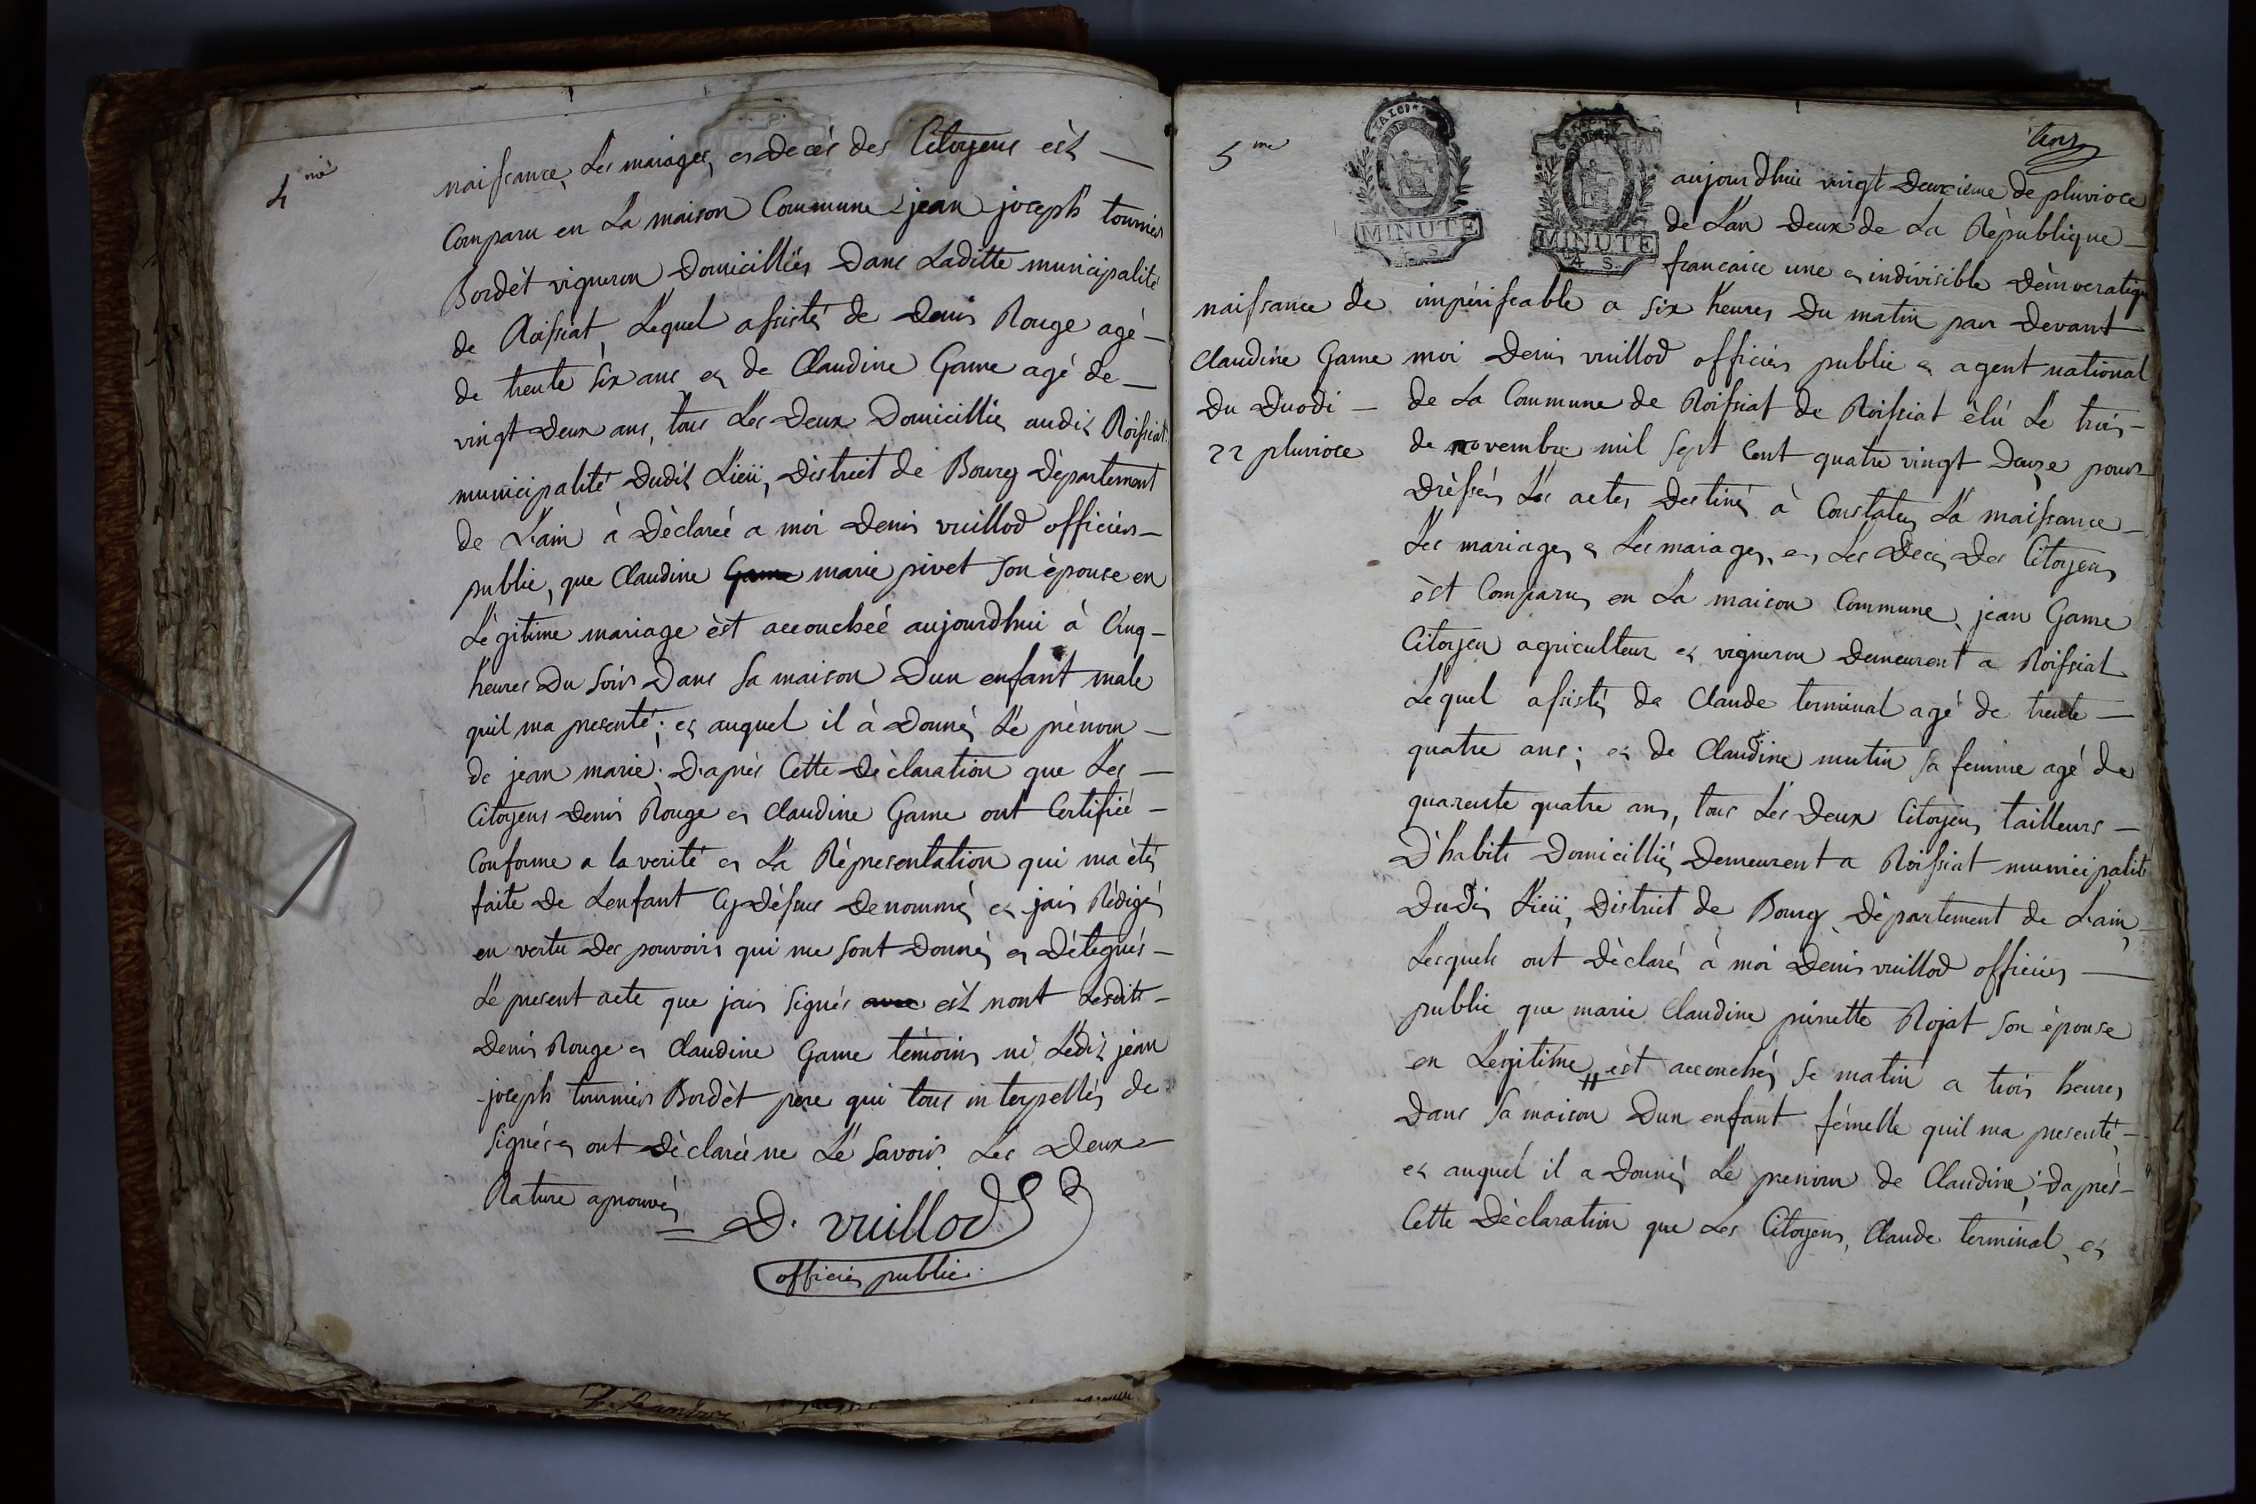 4me
naissance, Les mariages, et deces des Citoyens èst
Comparu en La maison Commune jean joseph tournier
Bordèt vigneron Domicilliés Dans Laditte municipalité
de Roissiat, Lequel assistés de Denis Rouge agé
de trente six ans et de Claudine Game agé de
vingt deux ans, tous Les Deux Domicilliés audit Roissiat
municipalité Dudit Lieü, District de Bourg Dèpartement
de L'ain à Dèclareé a moi Denis vuillod officiers
public, que Claudine Game marie pivet son èpouse en
Lègitime mariage èst accoucheé aujourdhui à Cinq
heures Du soir Dans sa maison Dun enfant male
quil ma presenté; et auquel il à Donnés Le prènom
de jean marie; D'aprés Cette Dèclaration que Les
Citoyens Denis Rouge et Claudine Game ont Certifiié
Conforme a la verité et La Rèpresentation qui ma étés
faite De Lenfant Cy Dèssus Denommés et jais Rédigés
en vertu Des pouvoirs qui me sont Donnés et Délegués
Le present acte que jais Signés avec èt nont Lesdits
Denis Rouge et Claudine Game tèmoins ni Ledit jean
joseph tournier Bordèt pere qui tous interpellés de
Signés et ont Dèclareé ne Lé Savoir Les Deux
Rature aprouvés
D. vuillod
officiés public
5me
MINUTE
4 S.
MINUTE
4 S.
aujourdhui vingt Deuxieme de pluviose
de L'an Deux de La Rèpublique
francaise une et indivisible Dèmocratique
naissance de
Claudine Game
Du Duodi
22 pluviose
impérissable a six heures Du matin par Devant
moi Denis vuillod officiés public et agent national
de La Commune de Roissiat de Roissiat èlú Le trois
de novembre mil sept Cent quatre vingt Douze pour
Drèssés Les actes Destinés à Constates La naissance
Les mariages et Les mariages, et Les Deces Des Citoyens
èst Comparus en La maison Commune, jean Game
Citoyen agriculteur et vigneron Demeurent a Roissiat
Lequel assistés de Claude terminal agé de trente
quatre ans; et de Claudine mutin sa femme agé de
quarente quatre ans, tous Les Deux Citoyens tailleurs
D'habits Domicilliés Demeurent a Roissiat municipalité
Dudit Lieü, District de Bourg Dèpartement de L'ain,
Lesquels ont Dèclarés à moi Denis vuillod officiés
public que marie Claudine pirrette Rojat son èpouse
en Legitime // èst accouchés se matin a trois heures
Dans sa maison Dun enfant fémelle quil ma presenté
et auquel il a Donnés Le prenom de Claudine; Daprés
Cette Dèclaration que Les Citoyens, Claude terminal, et